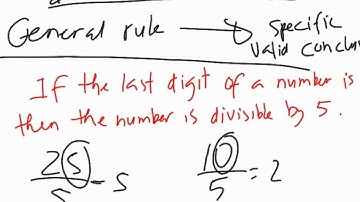 General rule → specific
valid
If the last digit of a number is
then the number is divisible by 5.
25 10
— 5 — = 2
5 5